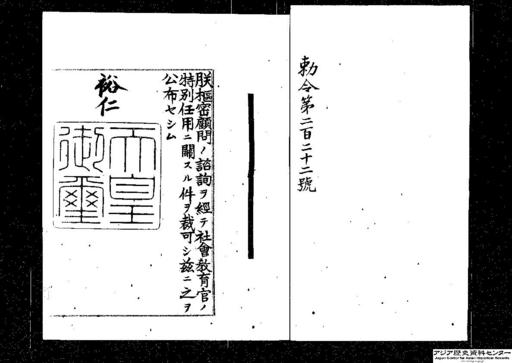 勅令第二百二十二號
朕樞密顧問ノ諮詢ヲ經テ社會敎育官ノ
特別任用ニ關スル件ヲ裁可シ茲ニ之ヲ
公布セシム
裕仁
天皇
御璽
アジア歴史資料センター
Japan Center for Asian Historical Records